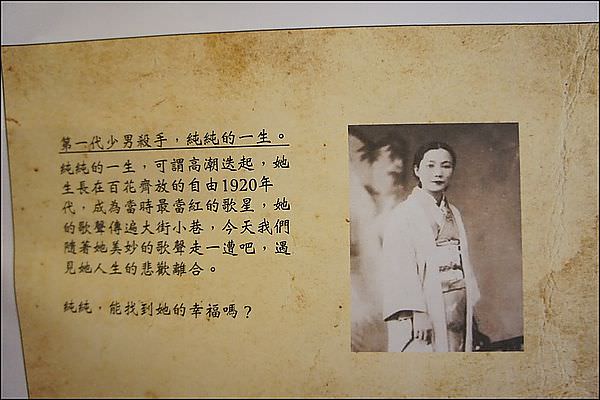 第一代少男殺手，純純的一生。
純純的一生，可謂高潮迭起，她
生長在百花齊放的自由1920年
代，成為當時最當紅的歌星，她
的歌聲傳遍大街小巷，今天我們
隨著她美妙的歌聲走一遭吧，遇
見她人生的悲歡離合。
純純，能找到她的幸福嗎？